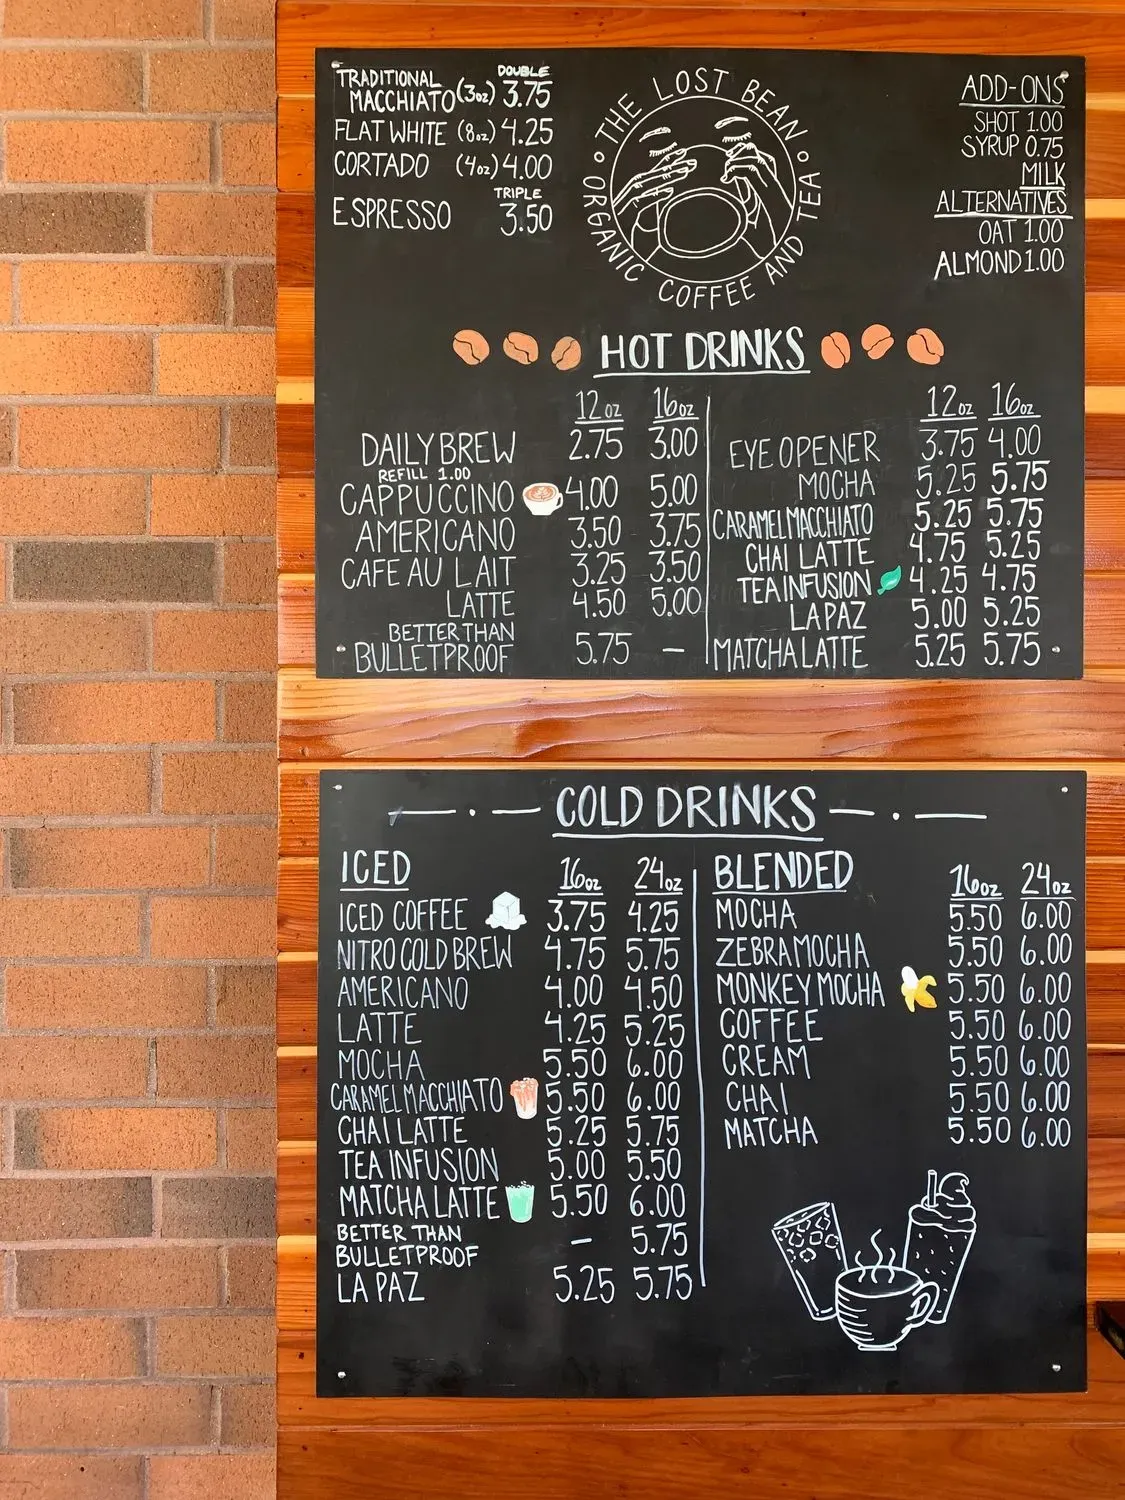 TRADITIONAL MACCHIATO (3oz) DOUBLE 3.75
FLAT WHITE (8oz) 4.25
CORTADO (4oz) 4.00
ESPRESSO TRIPLE 3.50
THE LOST BEAN
ORGANIC COFFEE AND TEA
ADD-ONS
SHOT 1.00
SYRUP 0.75
MILK
ALTERNATIVES
OAT 1.00
ALMOND 1.00
HOT DRINKS
12oz 16oz
DAILY BREW 2.75 3.00
REFILL 1.00
CAPPUCCINO 4.00 5.00
AMERICANO 3.50 3.75
CAFE AU LAIT 3.25 3.50
LATTE 4.50 5.00
BETTER THAN
BULLETPROOF 5.75 —
12oz 16oz
EYE OPENER 3.75 4.00
MOCHA 5.25 5.75
CARAMEL MACCHIATO 5.25 5.75
CHAI LATTE 4.75 5.25
TEA INFUSION 4.25 4.75
LA PAZ 5.00 5.25
MATCHA LATTE 5.25 5.75
COLD DRINKS
ICED 16oz 24oz
ICED COFFEE 3.75 4.25
NITRO COLD BREW 4.75 5.75
AMERICANO 4.00 4.50
LATTE 4.25 5.25
MOCHA 5.50 6.00
CARAMEL MACCHIATO 5.50 6.00
CHAI LATTE 5.25 5.75
TEA INFUSION 5.00 5.50
MATCHA LATTE 5.50 6.00
BETTER THAN
BULLETPROOF — 5.75
LA PAZ 5.25 5.75
BLENDED 16oz 24oz
MOCHA 5.50 6.00
ZEBRA MOCHA 5.50 6.00
MONKEY MOCHA 5.50 6.00
COFFEE 5.50 6.00
CREAM 5.50 6.00
CHAI 5.50 6.00
MATCHA 5.50 6.00